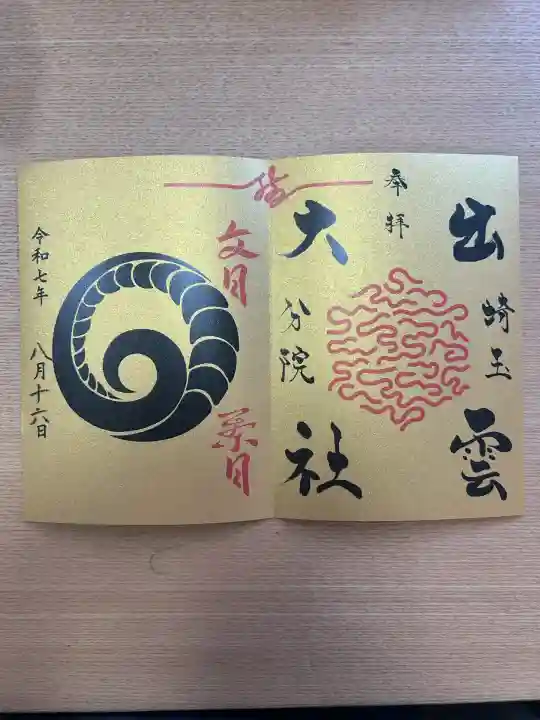 奉拝
出雲
埼玉
大社
分院
結
文月
葉月
令和七年 八月十六日